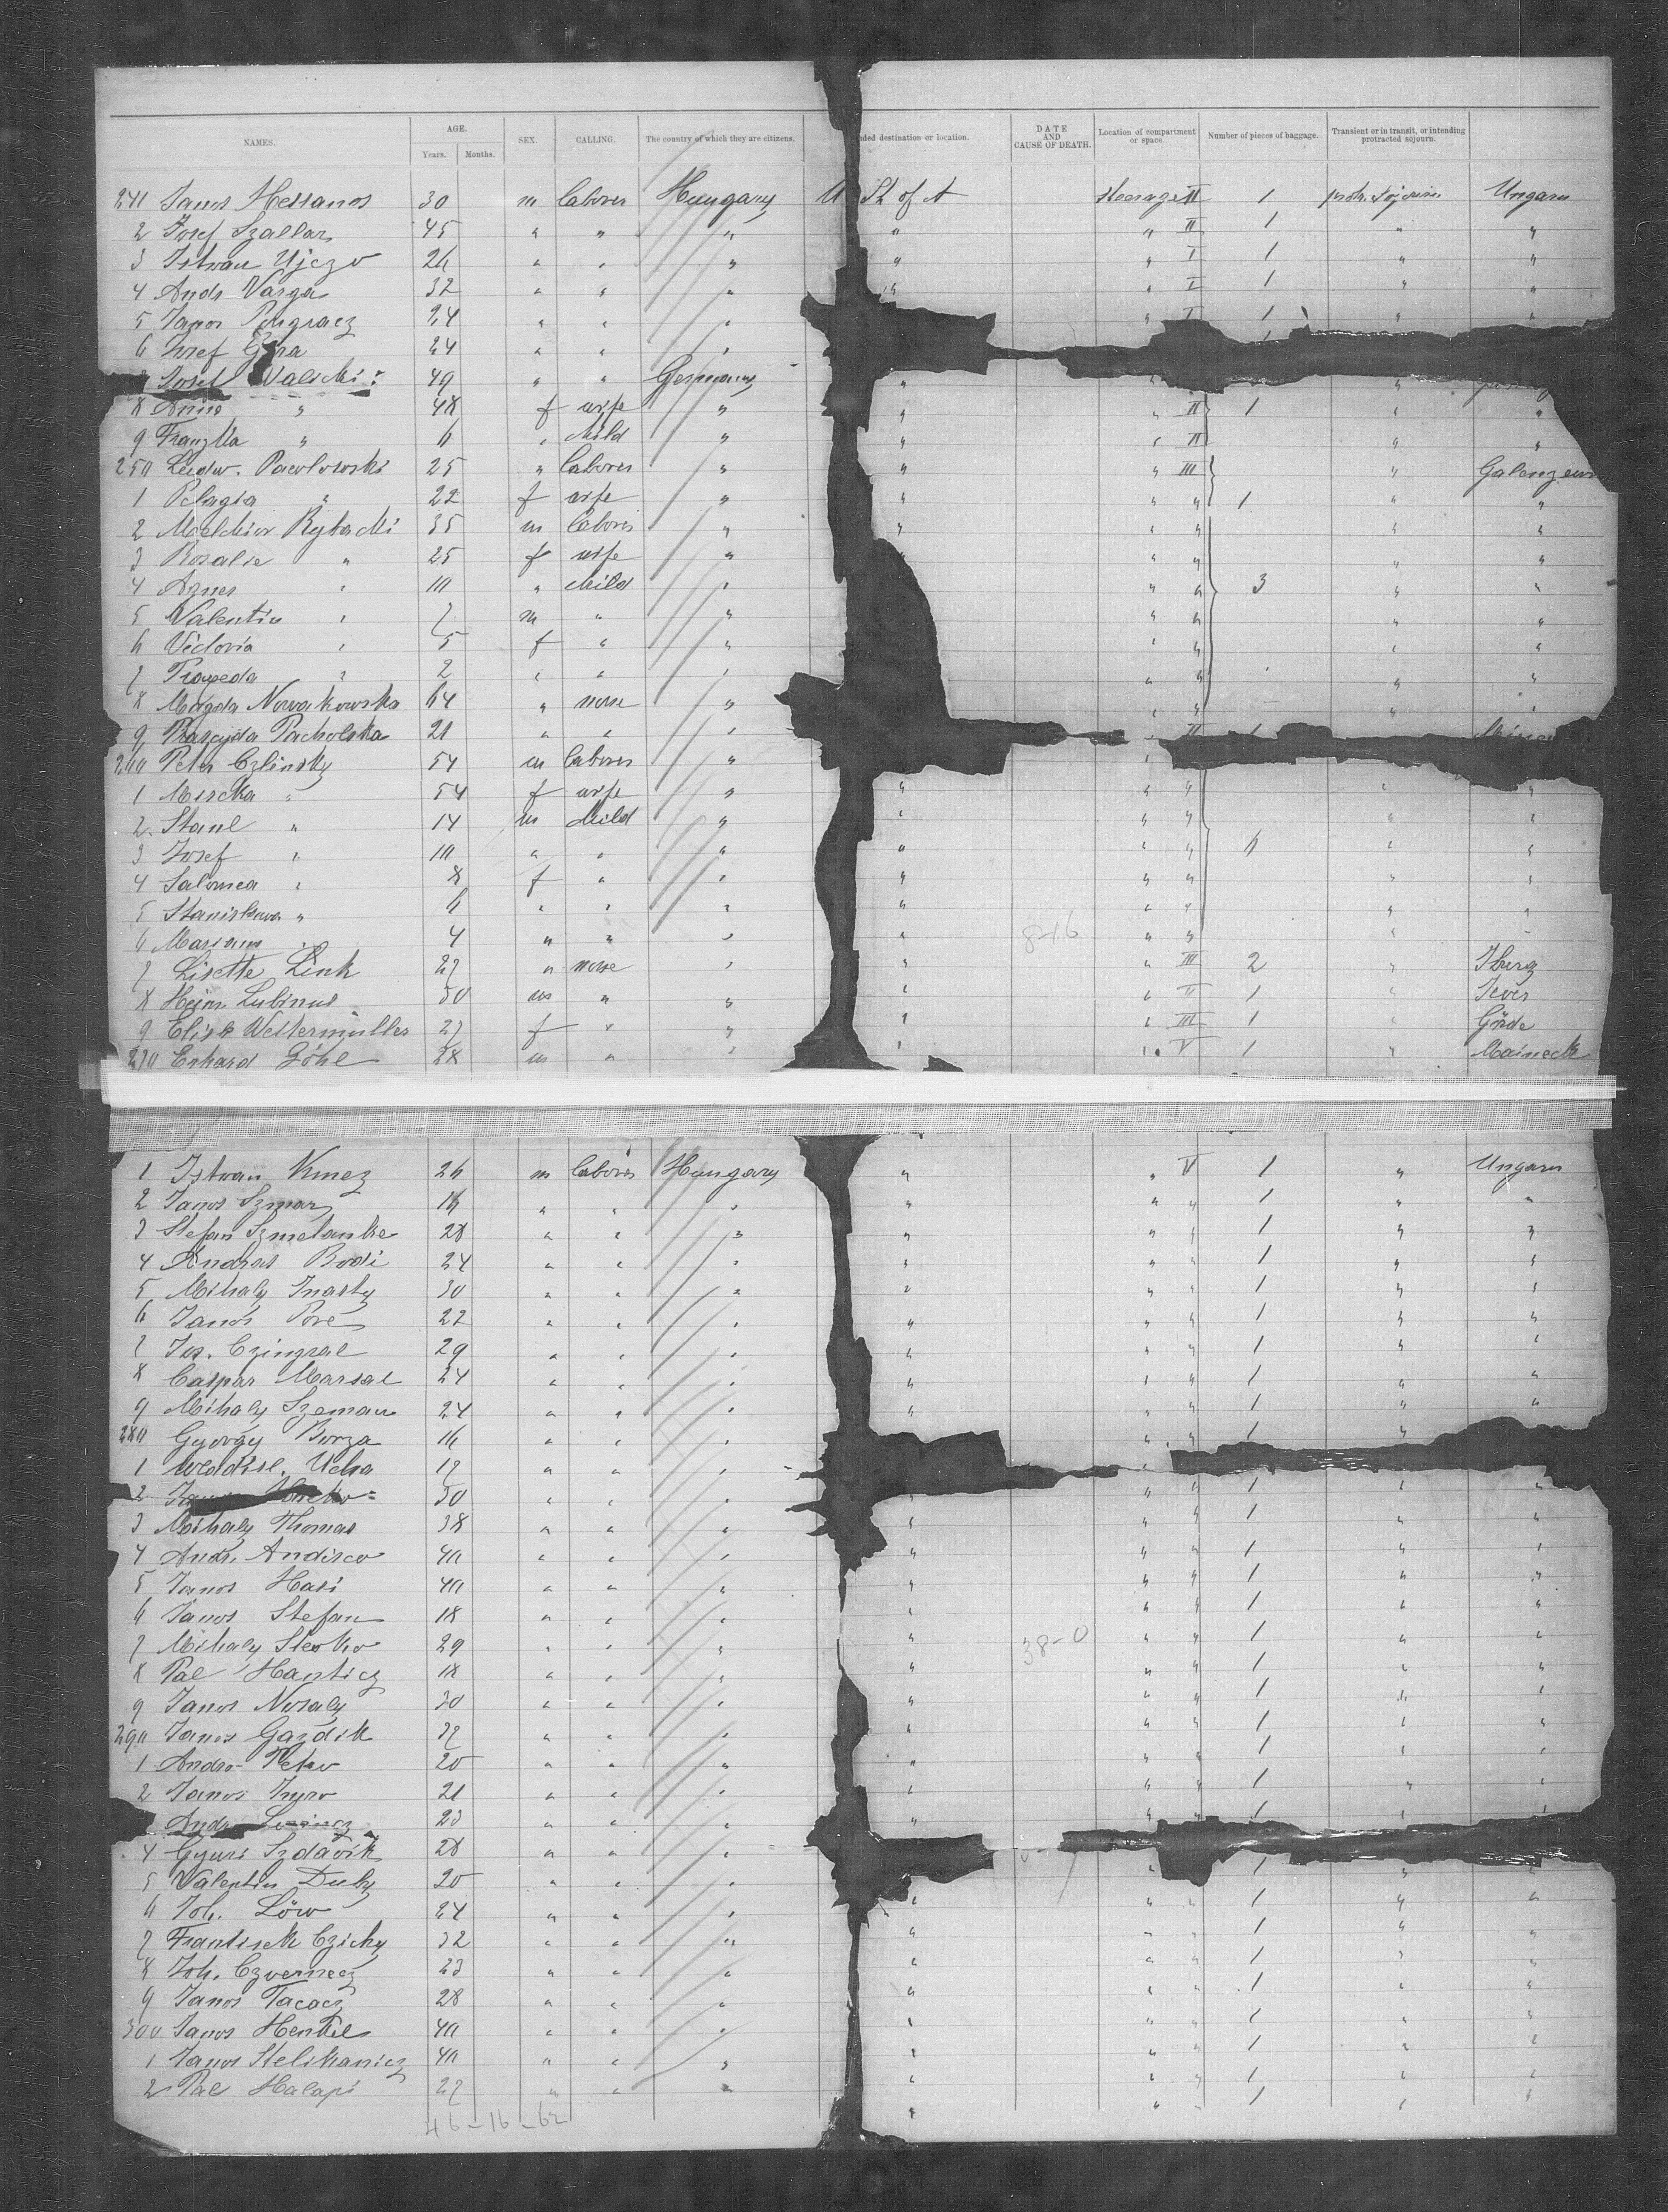 NAMES. AGE. Years. Months. SEX. CALLING. The country of which they are citizens. ded destination or location. DATE AND CAUSE OF DEATH. Location of compartment or space. Number of pieces of baggage. Transient or in transit, or intending protracted sojourn.
241 Janos Messanos 30 m labores Hungary U St of A steerage II 1 Ungarn
2 Josef Szallar 45 " " " " " II 1 " "
3 Istwan Ujczo 26 " " " " " I 1 " "
4 Andr Varga 32 " " " " " I 1 " "
5 Janos Pongracz 24 " " " " I 1 " "
6 Josef 24 " " "
Josef Walicki 49 " " Germany " " "
8 Anna " 48 f wife " " " II 1 " "
9 " 6 " child " " " II " "
250 Ludw. Pawlowski 25 " labores " " " III "
1 Pelagia " 22 f wife " " " " 1 " "
2 Melchior Rybacki 35 m labores " " " " " "
3 Rosalie " 25 f wife " " " " "
4 Agnes " 10 " child " " " 3 " "
5 Valentin " 7 m " " " " " "
6 Victoria " 5 f " " " " " "
7 " 2 " " " " " " "
8 Magda Nowakowska 64 " none " " " " "
9 Pacholska 21 " " " II
260 Peter Czlinsky 54 m labores " "
1 " 54 f wife " " " " " "
2 Stanl " 14 m child " " " " " "
3 Josef " 10 " " " " " " 6 " "
4 Salomea " 8 f " " " " " " "
5 Stanislawa " 6 " " " " " " " "
6 Mariann " 4 " " " " 8-16 " " " "
7 Lisette Link 27 " none " " " III 2 " Iberg
8 Heinr Lubinus 50 m " " " " V 1 " Jever
9 Elise Westermüller 27 f " " " " III 1 "
270 Erhard Göhl 28 m " " " " V 1 " Maineck
1 Istwan Kmez 26 m labores Hungary " " V 1 " Ungarn
2 Janos Szmar 16 " " " " " " 1 " "
3 Stefan Szmetanka 28 " " " " " " 1 " "
4 Andras Bodi 24 " " " " " " 1 " "
5 Mihaly Inasty 30 " " " " " " 1 " "
6 Janos Pore 22 " " " " " " 1 " "
7 Jos. Czingral 29 " " " " " " 1 " "
8 Caspar Marsal 24 " " " " " " 1 " "
9 Mihaly Szeman 24 " " " " " " 1 " "
280 György Borza 16 " " " " " 1
1 Ucha 17 " " " "
2 30 " " " " " " 1 " "
3 Mihaly Thomas 38 " " " " " " 1 " "
4 Andr. Andisco 40 " " " " " " 1 " "
5 Janos Hasi 40 " " " " " " 1 " "
6 Janos Stefan 18 " " " " " " 1 " "
7 Mihaly 29 " " " " 38-0 " " 1 " "
8 Pal 18 " " " " " " 1 " "
9 Janos Nosaly 30 " " " " " " 1 " "
290 Janos Gazdik 37 " " " " " " 1 " "
1 Andro Petro 20 " " " " " " 1 " "
2 Janos 21 " " " " " " 1 " "
23 " " " " " " 1 " "
4 Gyuri Szdavik 28 " " "
5 Valentin Duby 20 " " " " 1 " "
6 Joh. Löw 24 " " " " " " 1 " "
7 Frantisek Czichy 32 " " " " " " 1 " "
8 Joh. Czvernecz 23 " " " " " " 1 " "
9 Janos Tacacz 28 " " " " " " 1 " "
300 Janos Henkel 40 " " " " " " 1 " "
1 Janos Stelikanicz 40 " " " " " " 1 " "
2 Pal Halapi 27 " " " " " " 1 " "
46-16-62